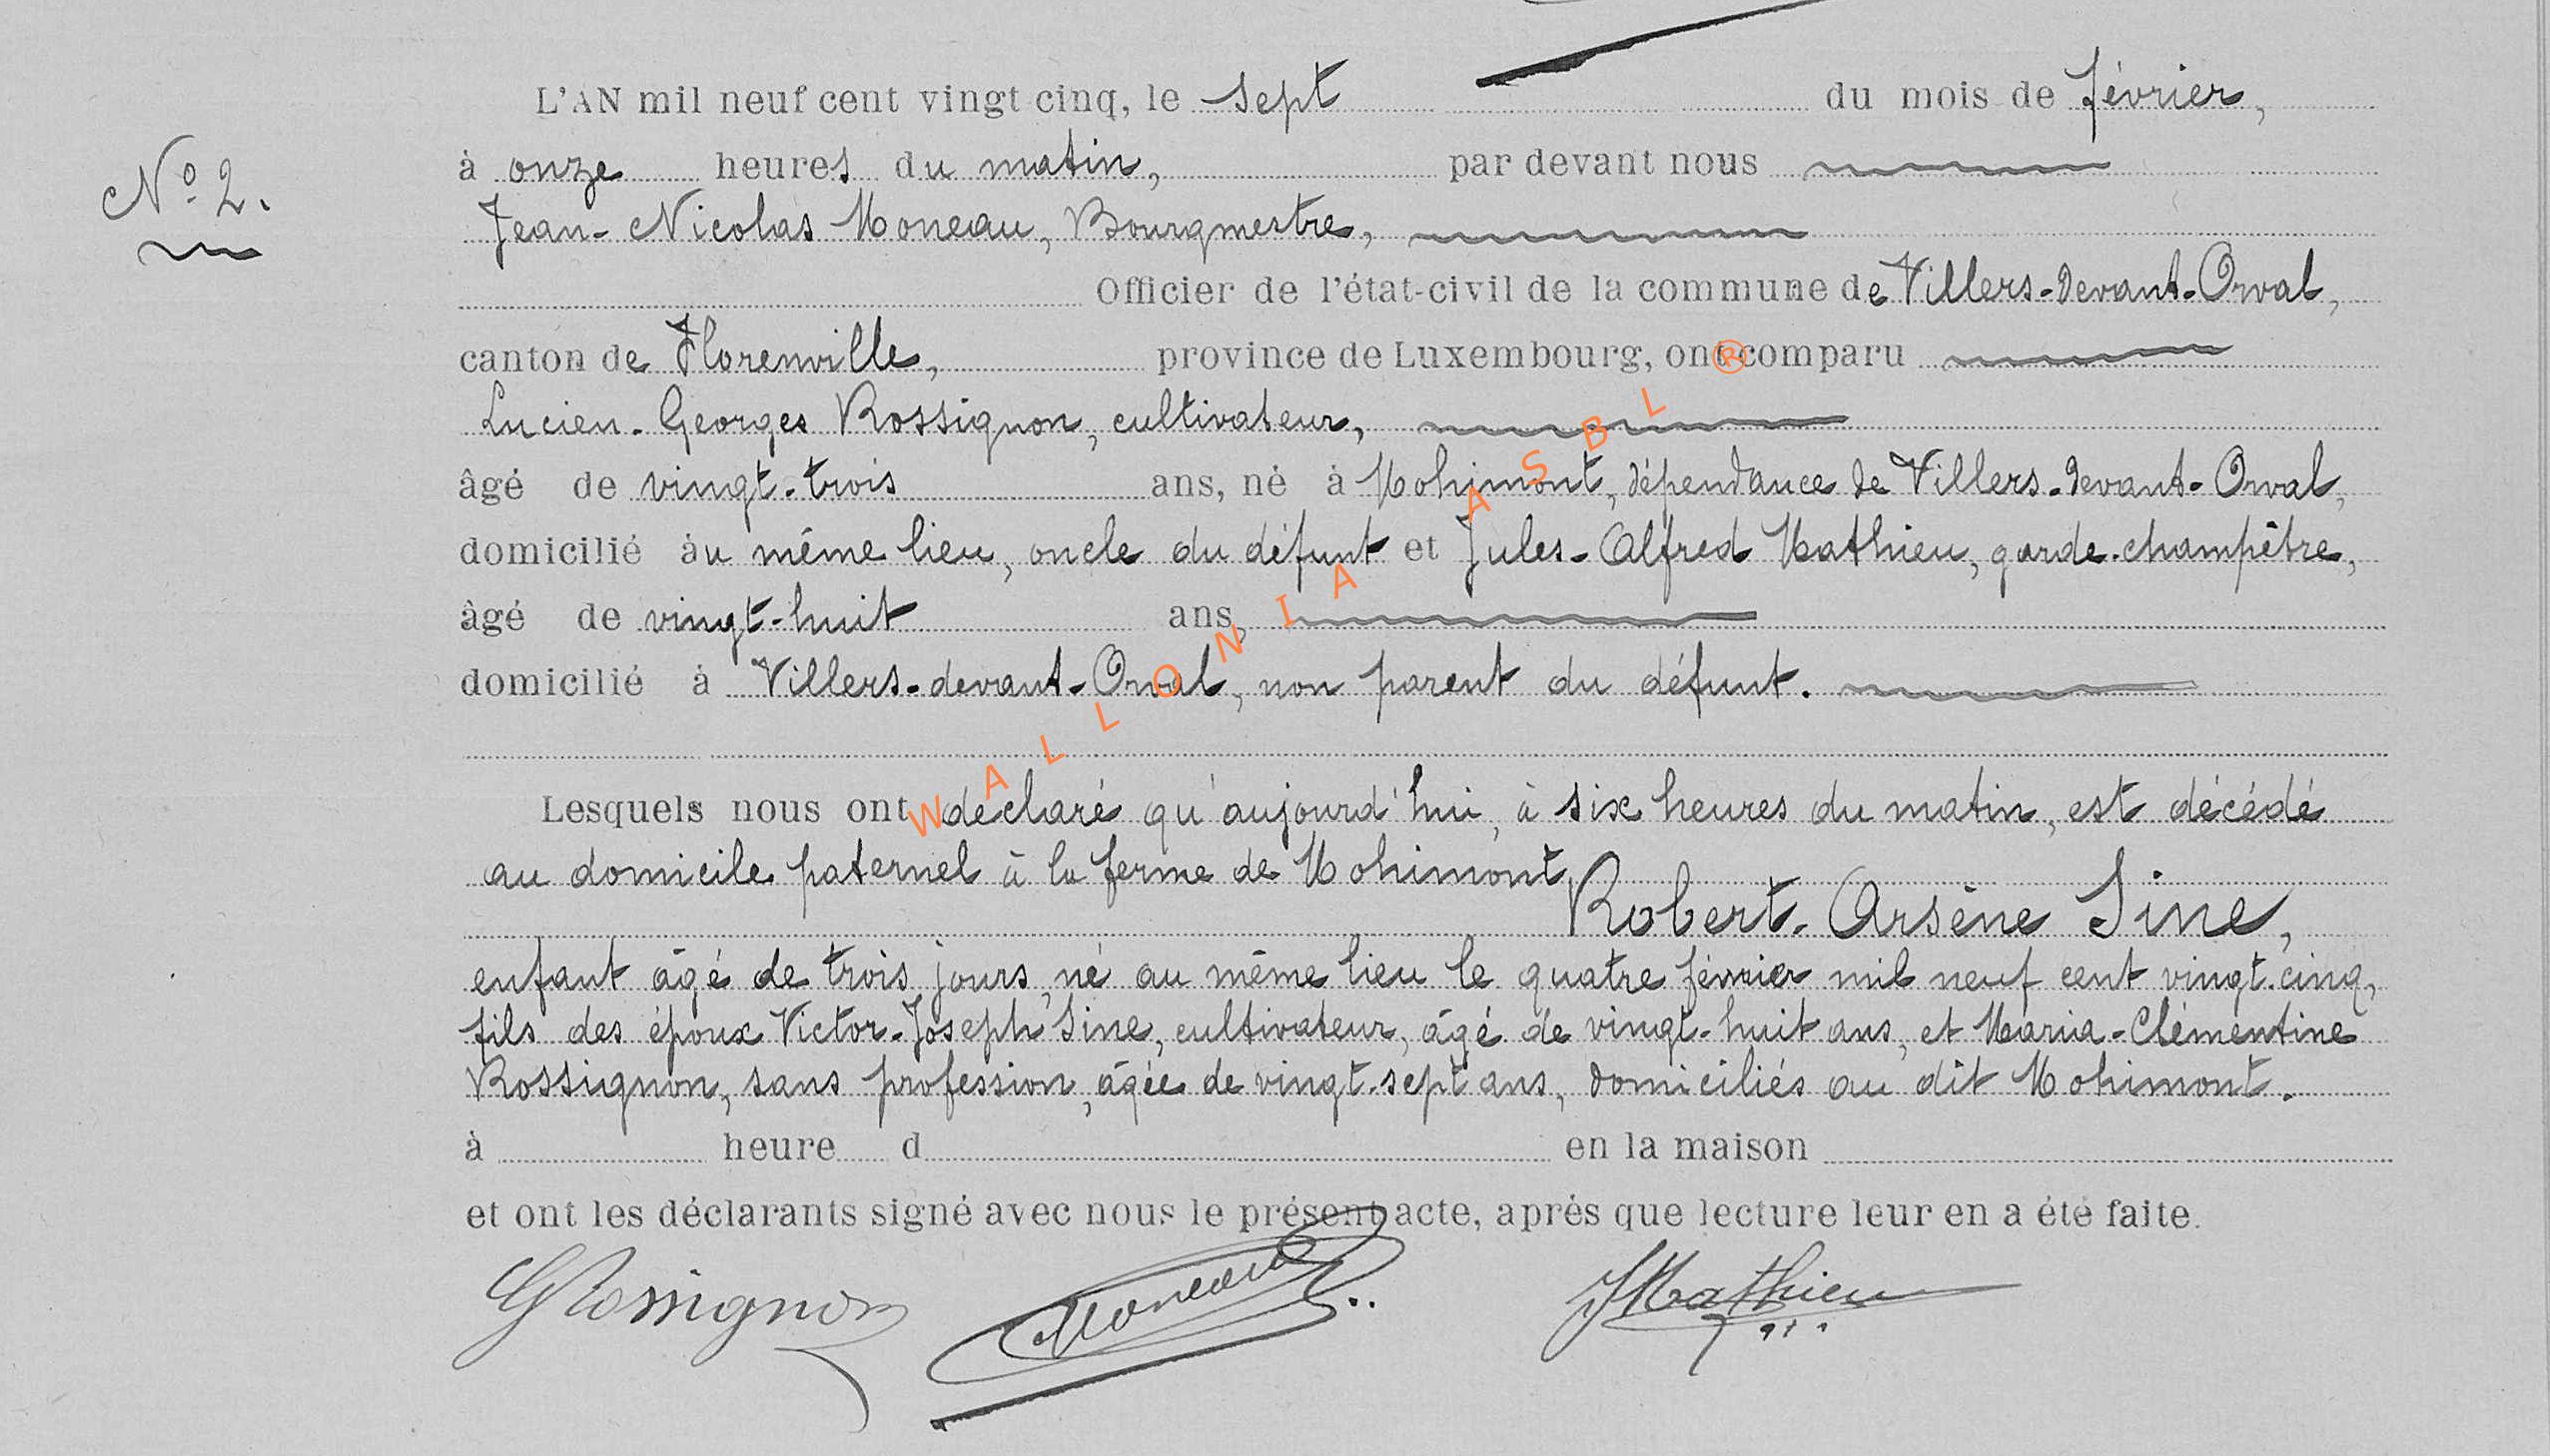 L'AN mil neuf cent vingt cinq, le sept du mois de février,
N° 2.
à onze heures du matin, par devant nous
Jean-Nicolas Moneau, Bourgmestre,
Officier de l'état-civil de la commune de Villers-devant-Orval,
canton de Florenville, province de Luxembourg, ont comparu
Lucien-Georges Rossignon, cultivateur,
âgé de vingt-trois ans, né à Mohimont, dépendance de Villers-devant-Orval,
domicilié au même lieu, oncle du défunt et Jules-Alfred Mathieu, garde-champêtre,
âgé de vingt-huit ans,
domicilié à Villers-devant-Orval, non parent du défunt.
Lesquels nous ont déclaré qu'aujourd'hui, à six heures du matin, est décédé
au domicile paternel à la ferme de Mohimont
Robert-Arsène Sine,
enfant âgé de trois jours, né au même lieu le quatre février mil neuf cent vingt-cinq,
fils des époux Victor-Joseph Sine, cultivateur, âgé de vingt-huit ans, et Maria-Clémentine
Rossignon, sans profession, âgée de vingt-sept ans, domiciliés au dit Mohimont.
à heure d en la maison
et ont les déclarants signé avec nous le présent acte, après que lecture leur en a été faite.
GRossignon Moneau JMathieu
WALLONIA ASBL ®